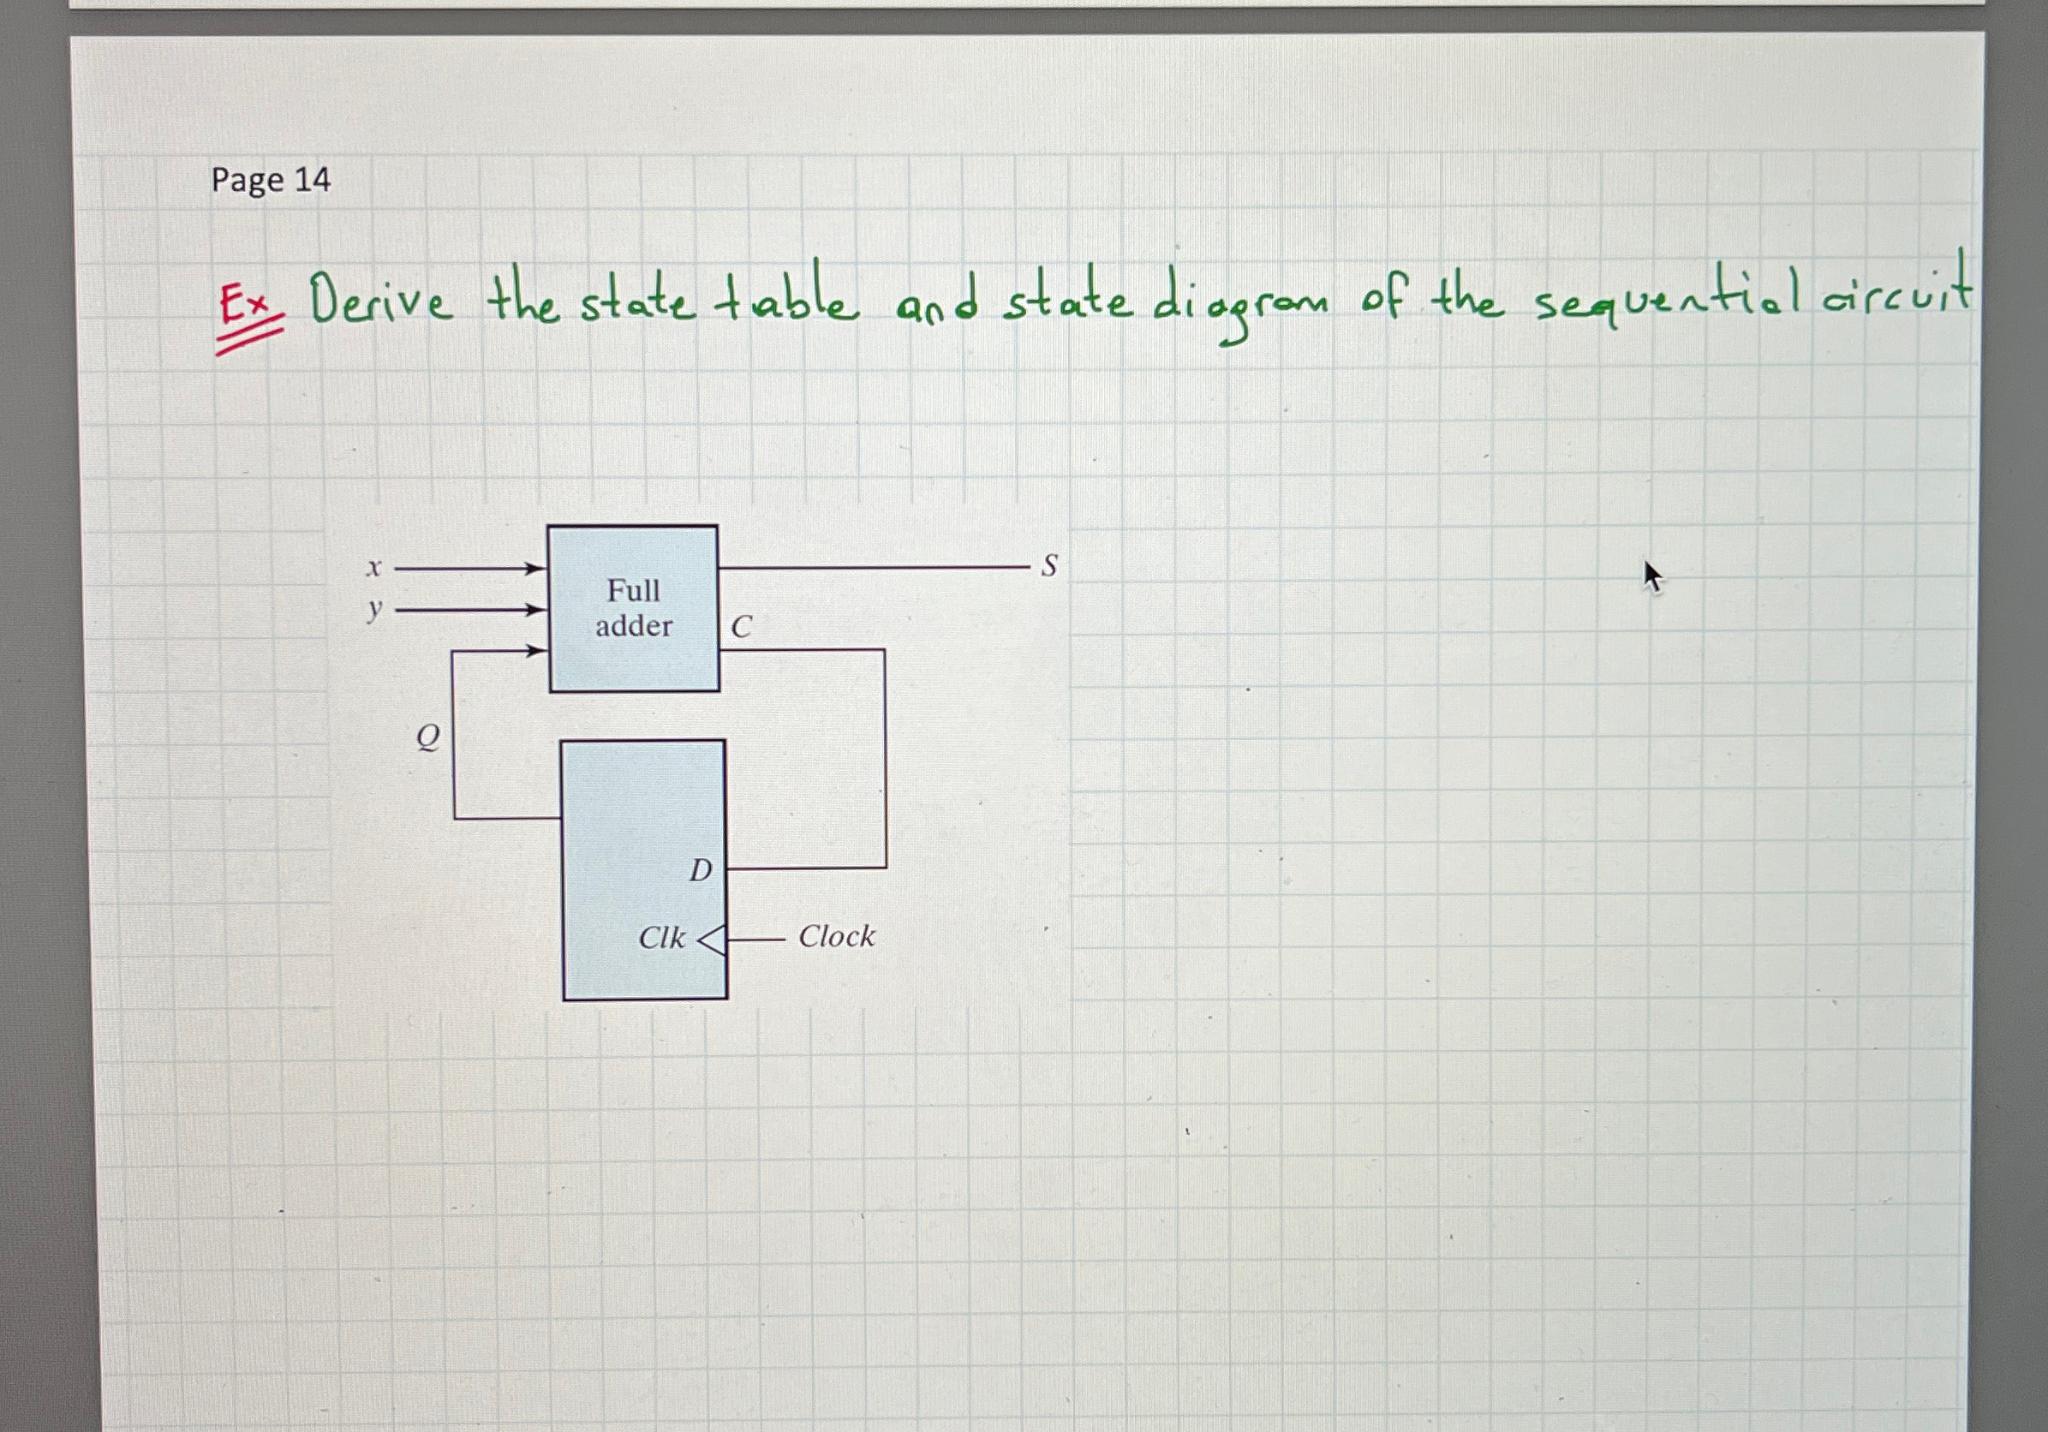 Page 14
Ex Derive the state table and state diagram of the sequential circuit
x
S
y
Full
adder
C
Q
D
Clk
Clock